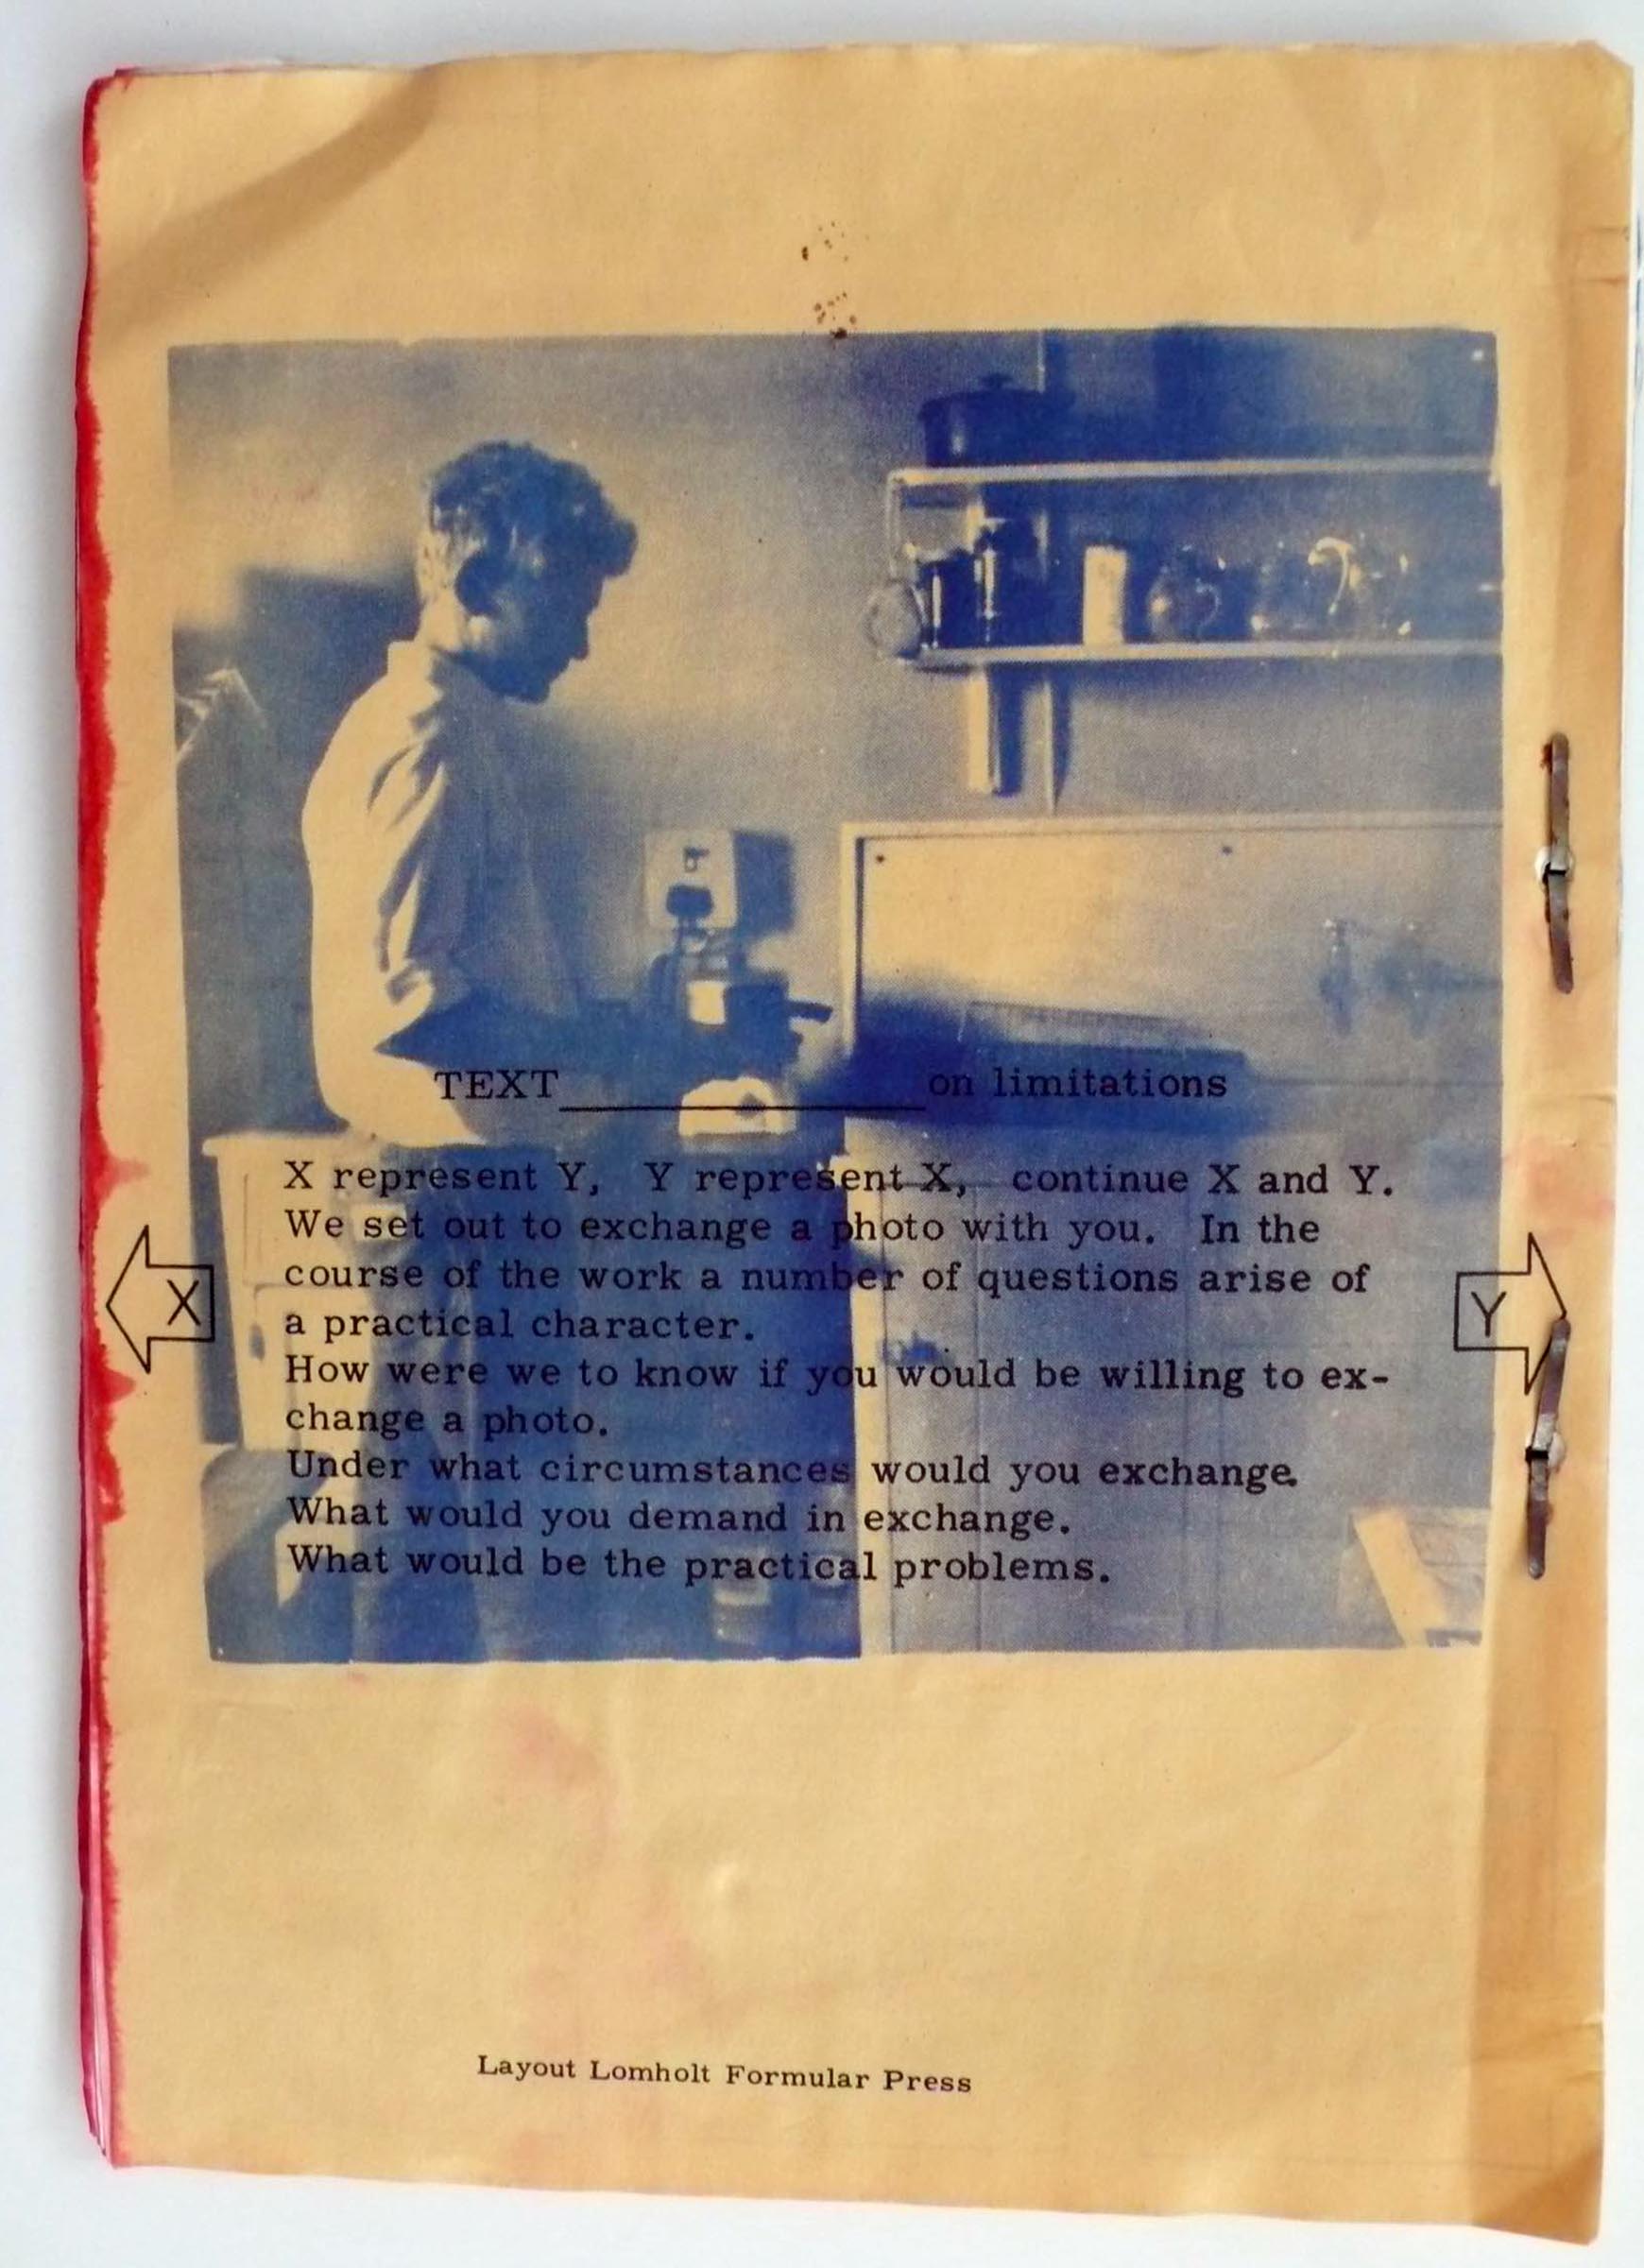 TEXT__________on limitations
X represent Y, Y represent X, continue X and Y.
We set out to exchange a photo with you. In the
course of the work a number of questions arise of
a practical character.
How were we to know if you would be willing to ex-
change a photo.
Under what circumstances would you exchange.
What would you demand in exchange.
What would be the practical problems.
X
Y
Layout Lomholt Formular Press